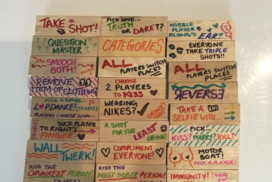 TAKE A SHOT!
PICK ONE
TRUTH
OR DARE?
PLAYER
QUESTION
MASTER
CATEGORIES
EVERYONE
TAKE TRIPLE
SHOTS!!
SMOOCH
BOTH!
ALL
PLAYERS SWITCH
PLACES
ALL
PLAYERS SWITCH
PLACES
REMOVE
ITEM OF CLOTHING
CHOOSE
2 PLAYERS
TO KISS
REVERSE
LAPDANCE!
WEARING
NIKES?
TAKE A
SELFIE WITH
PLAYER TO
RIGHT'S
FINGER
A SHOT
FOR THE
LEAST
PICK
KISS? MARRY? KILL?
WALL
TWERK!
COMPLIMENT
EVERYONE!
MOTOR
BOAT!
KISS THE
DRUNKEST PERSON!
KISS THE
MOST SOBER PERSON!
IMMUNITY!